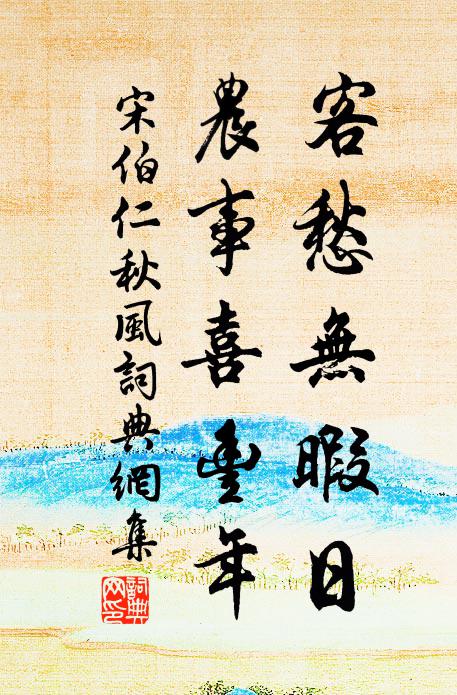 客愁無暇日
農事喜豐年
宋伯仁秋風詞典網集
詞典網印